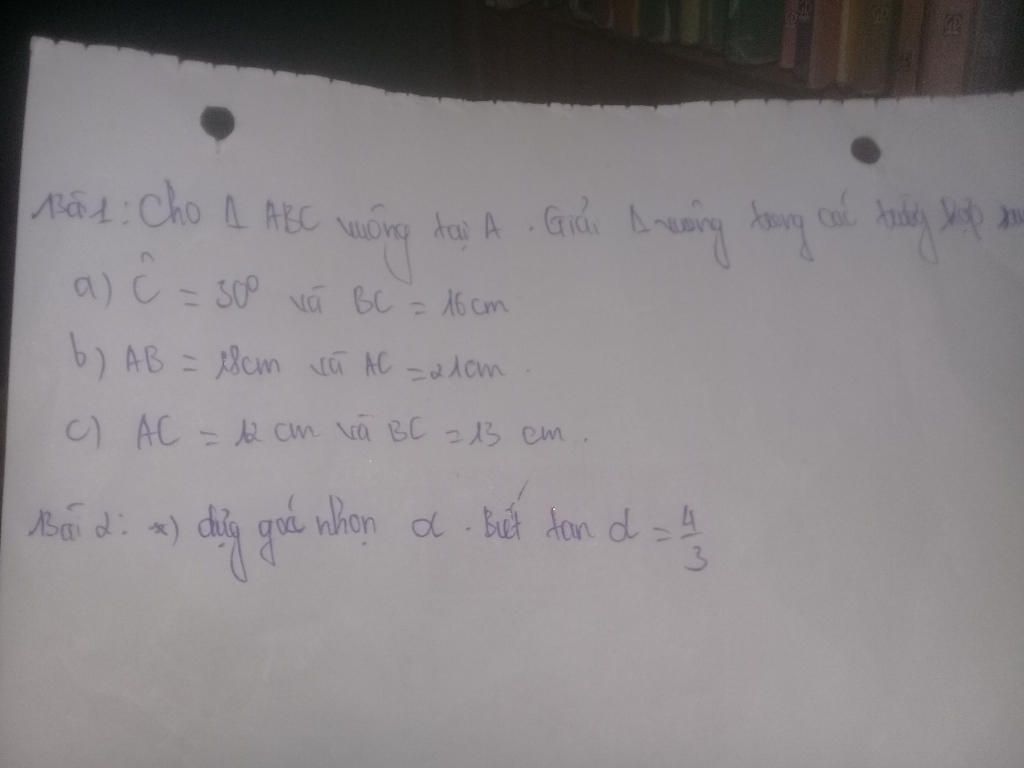 Bài 1: Cho Δ ABC vuông tại A. Giải Δ vuông trong các trường hợp sau
a) Ĉ = 30° và BC = 16cm
b) AB = 18cm và AC = 21cm.
c) AC = 12 cm và BC = 13 cm.
Bài 2: *) dựg goá nhọn α. Biết tan α = 4/3